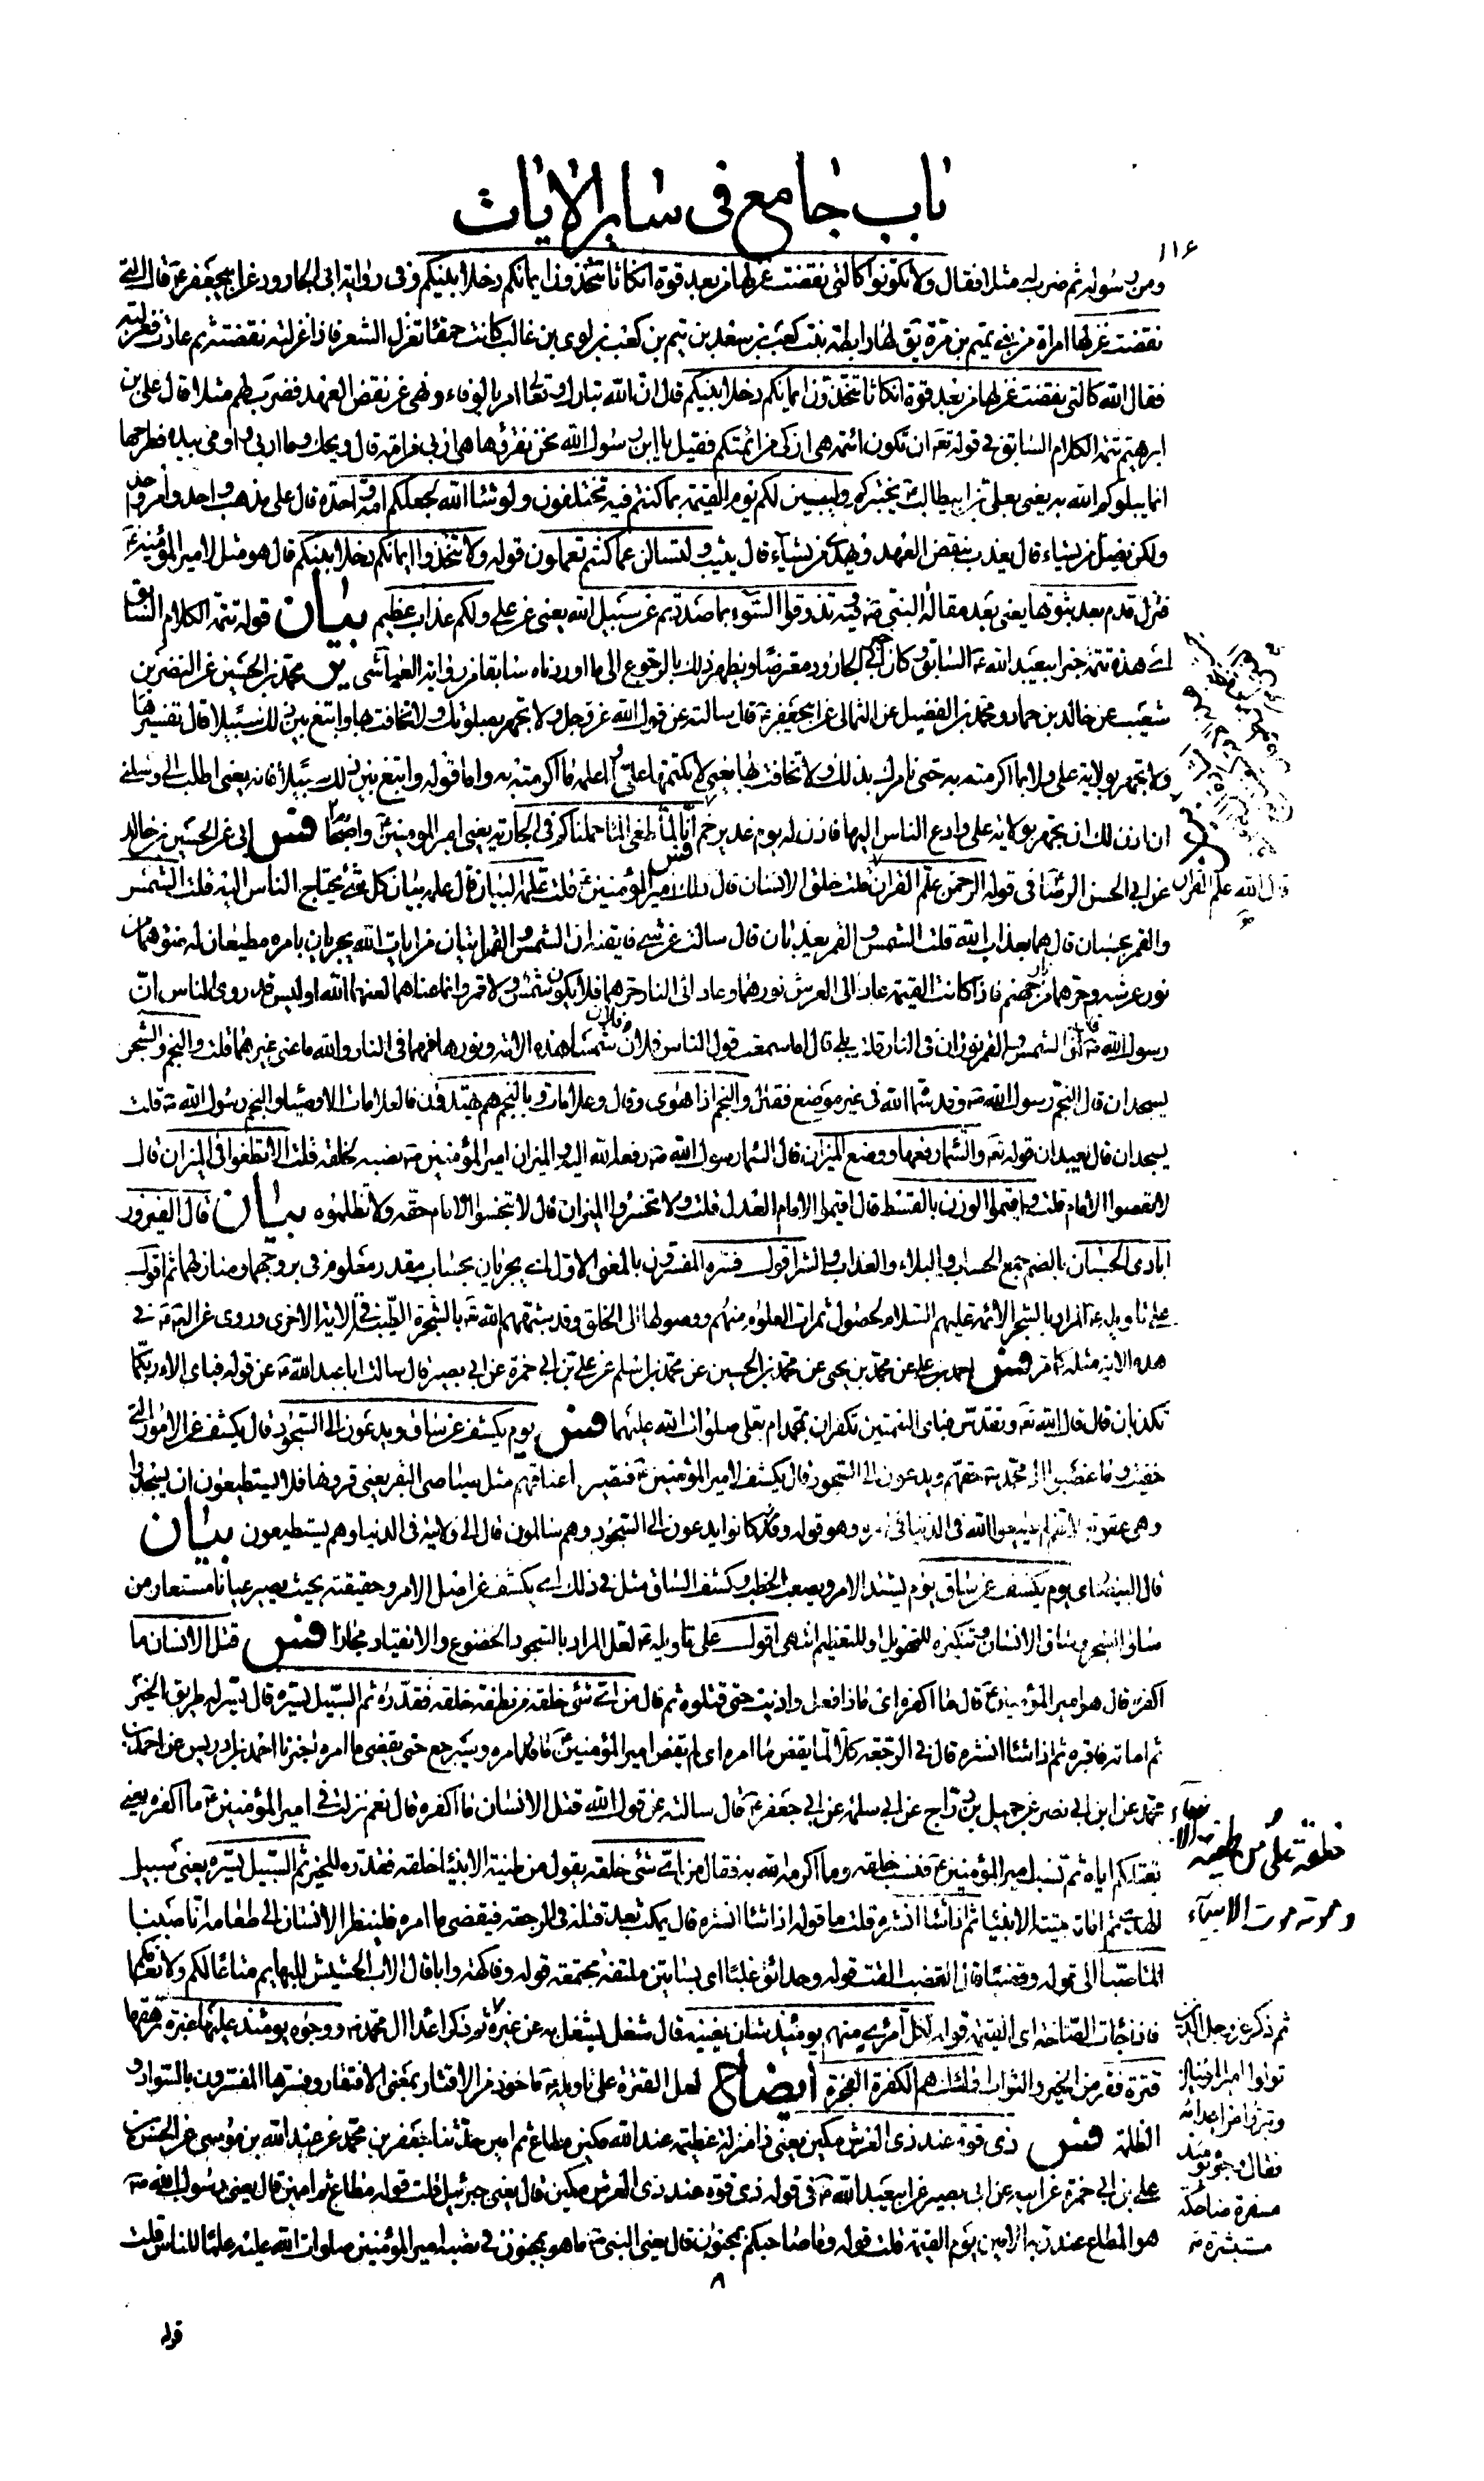 باب جامع في ساير الايات
١١۶
ومن رسوله ثم ضرب لهم مثلا فقال ولا تكونوا كالتي نقضت غزلها من بعد قوة انكاثا تتخذون ايمانكم دخلا بينكم وفي رواية ابي الجارود عن ابيجعفر ع قال التي
نقضت غزلها امراة من بني تميم بن مرة يق لها رابطة بنت كعب بن سعد بن تيم بن كعب بن لوى بن غالب كانت حمقاء تغزل الشعر فاذا غزلته نقضته ثم عادت فغزلته
فقال الله كالتي نقضت غزلها من بعد قوة انكاثا تتخذون ايمانكم دخلا بينكم قال ان الله تبارك وتعالى امر بالوفاء ونهى عن نقض العهد فضرب لهم مثلا قال علي بن
ابرهيم تتمة الكلام السابق في قوله تعه ان تكون ائمة هي ازكى من ائمتكم فقيل يا ابن رسول الله نحن نقرؤها هي اربى من امة قال ويحك وما اربى واومى بيده فطرحها
انما يبلوكم الله به يعني بعلي بن ابيطالب يختبركم وليبينن لكم يوم القيمة ما كنتم فيه تختلفون ولو شاء الله لجعلكم امة واحدة قال على مذهب واحد وامر واحد
ولكن يضل من يشاء قال يعذب بنقض العهد ويهدي من يشاء قال يثيب ولتسالن عما كنتم تعملون قوله ولا تتخذوا ايمانكم دخلا بينكم قال هو مثل لامير المؤمنين ع
فتزل قدم بعد ثبوتها يعني بعد مقالة النبي ص فيه تذوقوا السوء بما صددتم عن سبيل الله يعني عن علي ولكم عذاب عظيم بيان قوله تتمة الكلام السابق
اى هذه تتمة خبر ابيعبد الله ع السابق وكان خبر ابي الجارود معترضا ويظهر ذلك بالرجوع الى ما اوردناه سابقا من رواية العياشي ير محمد بن الحسين عن النضر بن
شعيب عن خالد بن حماد ومحمد بن الفضيل عن الثمالي عن ابيجعفر ع قال سالته عن قول الله عز وجل ولا تجهر بصلوتك ولا تخافت بها وابتغ بين ذلك سبيلا قال تفسيرها
ولا تجهر بولاية علي ولا بما اكرمته به حتى نامرك بذلك ولا تخافت بها يعني لا تكتمها عليا واعلمه ما اكرمته به واما قوله وابتغ بين ذلك سبيلا فانه يعني اطلب الي وسلني
ان اذن لك ان تجهر بولاية علي وادع الناس اليها فاذن له يوم غدير خم انا لما طغى الماء حملناكم في الجارية يعني امير المؤمنين ع واصحابه فس ابي عن الحسين بن خالد
عن ابي الحسن الرضا في قوله الرحمن علم القران قلت خلق الانسان قال ذلك امير المؤمنين ع قلت علمه البيان قال علمه بيان كل شئ يحتاج الناس اليه قلت الشمس
والقمر بحسبان قال هما بعذاب الله قلت الشمس والقمر يعذبان قال سالت عن شئ فاتقنه ان الشمس والقمر ايتان من ايات الله يجريان بامره مطيعان له ضوءهما من
نور عرشه وحرهما من جهنم فاذا كانت القيمة عاد الى العرش نورهما وعاد الى النار حرهما فلا يكون شمس ولا قمر وانما عناهما لعنهما الله اوليس قد روى الناس ان
رسول الله ص قال ان الشمس والقمر نوران في النار قلت بلى قال اما سمعت قول الناس فلان وفلان شمسا هذه الامة ونورها فهما في النار والله ما عنى غيرهما قلت والنجم والشجر
يسجدان قال النجم رسول الله ص وقد سماه الله في غير موضع فقال والنجم اذا هوى وقال وعلامات وبالنجم هم يهتدون فالعلامات الاوصياء والنجم رسول الله ص قلت
يسجدان قال يعبدان قوله تعه والسماء رفعها ووضع الميزان قال السماء رسول الله ص رفعه الله اليه والميزان امير المؤمنين ص نصبه لخلقه قلت الا تطغوا في الميزان قال
لا تعصوا الامام قلت واقيموا الوزن بالقسط قال اقيموا الامام العدل قلت ولا تخسروا الميزان قال لا تبخسوا الامام حقه ولا تظلموه بيان قال الفيروز
ابادى الحسبان بالضم جمع الحساب والبلاء والعذاب والشر اقول فسره المفسرون بالمعنى الاول اى يجريان بحساب مقدر معلوم في بروجهما ومنازلهما ثم اقول
على تاويله ع المراد بالشجر الائمة عليهم السلام لحصول ثمرات العلوم منهم ووصولها الى الخلق وقد شبههم الله تعه بالشجرة الطيبة في الاية الاخرى وروى عن ص في
هذه الاية مثله كما مر فس احمد بن علي عن محمد بن يحيى عن محمد بن الحسين عن محمد بن اسلم عن علي بن ابي حمزة عن ابي بصير قال سالت ابا عبد الله ع عن قوله فباى الاء ربكما
تكذبان قال قال الله تعه وتقدس فباى النعمتين تكفران بمحمد ام بعلي صلوات الله عليهما فس يوم يكشف عن ساق ويدعون الى السجود قال يكشف عن الامور التي
خفيت وما غصبوا ال محمد ص حقهم ويدعون الى السجود قال يكشف لامير المؤمنين ع فتصير اعناقهم مثل صياصى البقر يعني قرونها فلا يستطيعون ان يسجدوا
وهي عقوبة لانهم لم يطيعوا الله في الدنيا في امره وهو قوله وقد كانوا يدعون الى السجود وهم سالمون قال الى ولايته في الدنيا وهم يستطيعون بيان
قال البيضاوى يوم يكشف عن ساق يوم يشتد الامر ويصعب الخطب وكشف الساق مثل في ذلك اى يكشف عن اصل الامر وحقيقته بحيث يصير عيانا مستعار من
ساق الشجر وساق الانسان وتنكيره للتهويل او للتعظيم انتهى اقول على تاويله ع لعل المراد بالسجود الخضوع والانقياد مجازا فس قتل الانسان ما
اكفره قال هو امير المؤمنين ع قال ما اكفره اى ماذا فعل واذنب حتى قتلوه ثم قال من اى شئ خلقه من نطفة خلقه فقدره ثم السبيل يسره قال يسر له طريق الخير
ثم اماته فاقبره ثم اذا شاء انشره قال في الرجعة كلا لما يقض ما امره اى لم يقض امير المؤمنين ع ما قد امره وسيرجع حتى يقضى ما امره اخبرنا احمد بن ادريس عن احمد بن
محمد عن ابن ابي نصر عن جميل بن دراج عن ابي سلمة عن ابي جعفر ع قال سالته عن قول الله قتل الانسان ما اكفره قال نعم نزلت في امير المؤمنين ع ما اكفره يعني
بقتلكم اياه ثم نسب امير المؤمنين ع فنسب خلقه وما اكرمه الله به فقال من اى شئ خلقه يقول من طينة الانبياء خلقه فقدره للخير ثم السبيل يسره يعني سبيل
الهدى ثم اماته ميتة الانبياء ثم اذا شاء انشره قلت ما قوله اذا شاء انشره قال يمكث بعد قتله في الرجعة فيقضى ما امره فلينظر الانسان الى طعامه انا صببنا
الماء صبا الى قوله وقضبا قال القضب القت قوله وحدائق غلبا اى بساتين ملتفة مجتمعة قوله وفاكهة وابا قال الاب الحشيش للبهايم متاعا لكم ولانعامكم
فاذا جاءت الصاخة اى القيمة قوله لكل امرئ منهم يومئذ شان يغنيه قال شغل يشغل به عن غيره ثم ذكر اعداء ال محمد ص ووجوه يومئذ عليها غبرة ترهقها
قترة فقر من الخير والثواب اولئك هم الكفرة الفجرة ايضاح لعل القترة على تاويله ع ماخوذ من الاقتار بمعنى الافتقار وفسرها المفسرون بالسواد و
الظلمة فس ذى قوة عند ذى العرش مكين يعني ذا منزلة عظيمة عند الله مكين مطاع ثم امين حدثنا جعفر بن محمد عن عبد الله بن موسى عن الحسن بن
علي بن ابي حمزة عن ابيه عن ابي بصير عن ابيعبد الله ع في قوله ذى قوة عند ذى العرش مكين قال يعني جبرئيل قلت قوله مطاع ثم امين قال يعني رسول الله ص
هو المطاع عند ربه الامين يوم القيمة قلت قوله وما صاحبكم بمجنون قال يعني النبي ص ما هو بمجنون في نصبه امير المؤمنين صلوات الله عليه علما للناس قلت
٨
قوله
قال الله علم القران
ثم ذكر عز وجل الذين
تولوا امير المؤمنين
وتبرؤا من اعدائه
فقال وجوه يومئذ
مسفرة ضاحكة
مستبشرة